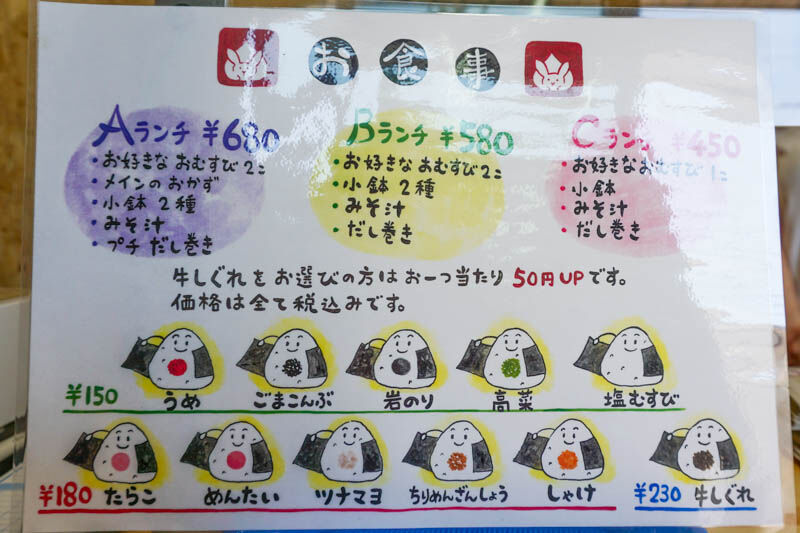 お食事
Aランチ ¥680
・お好きな おむすび 2コ
・メインの おかず
・小鉢 2種
・みそ汁
・プチ だし巻き
Bランチ ¥580
・お好きな おむすび 2コ
・小鉢 2種
・みそ汁
・だし巻き
Cランチ ¥450
・お好きな おむすび 1コ
・小鉢
・みそ汁
・だし巻き
牛しぐれを お選びの方は お一つ当たり 50円UPです。
価格は全て税込みです。
¥150 うめ ごまこんぶ 岩のり 高菜 塩むすび
¥180 たらこ めんたい ツナマヨ ちりめんざんしょう しゃけ ¥230 牛しぐれ